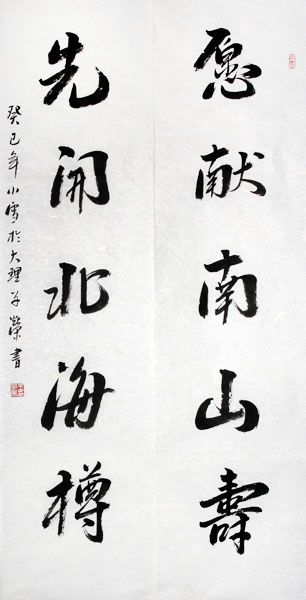 愿献南山壽
先开北海樽
癸巳年小雪於大理
榮書